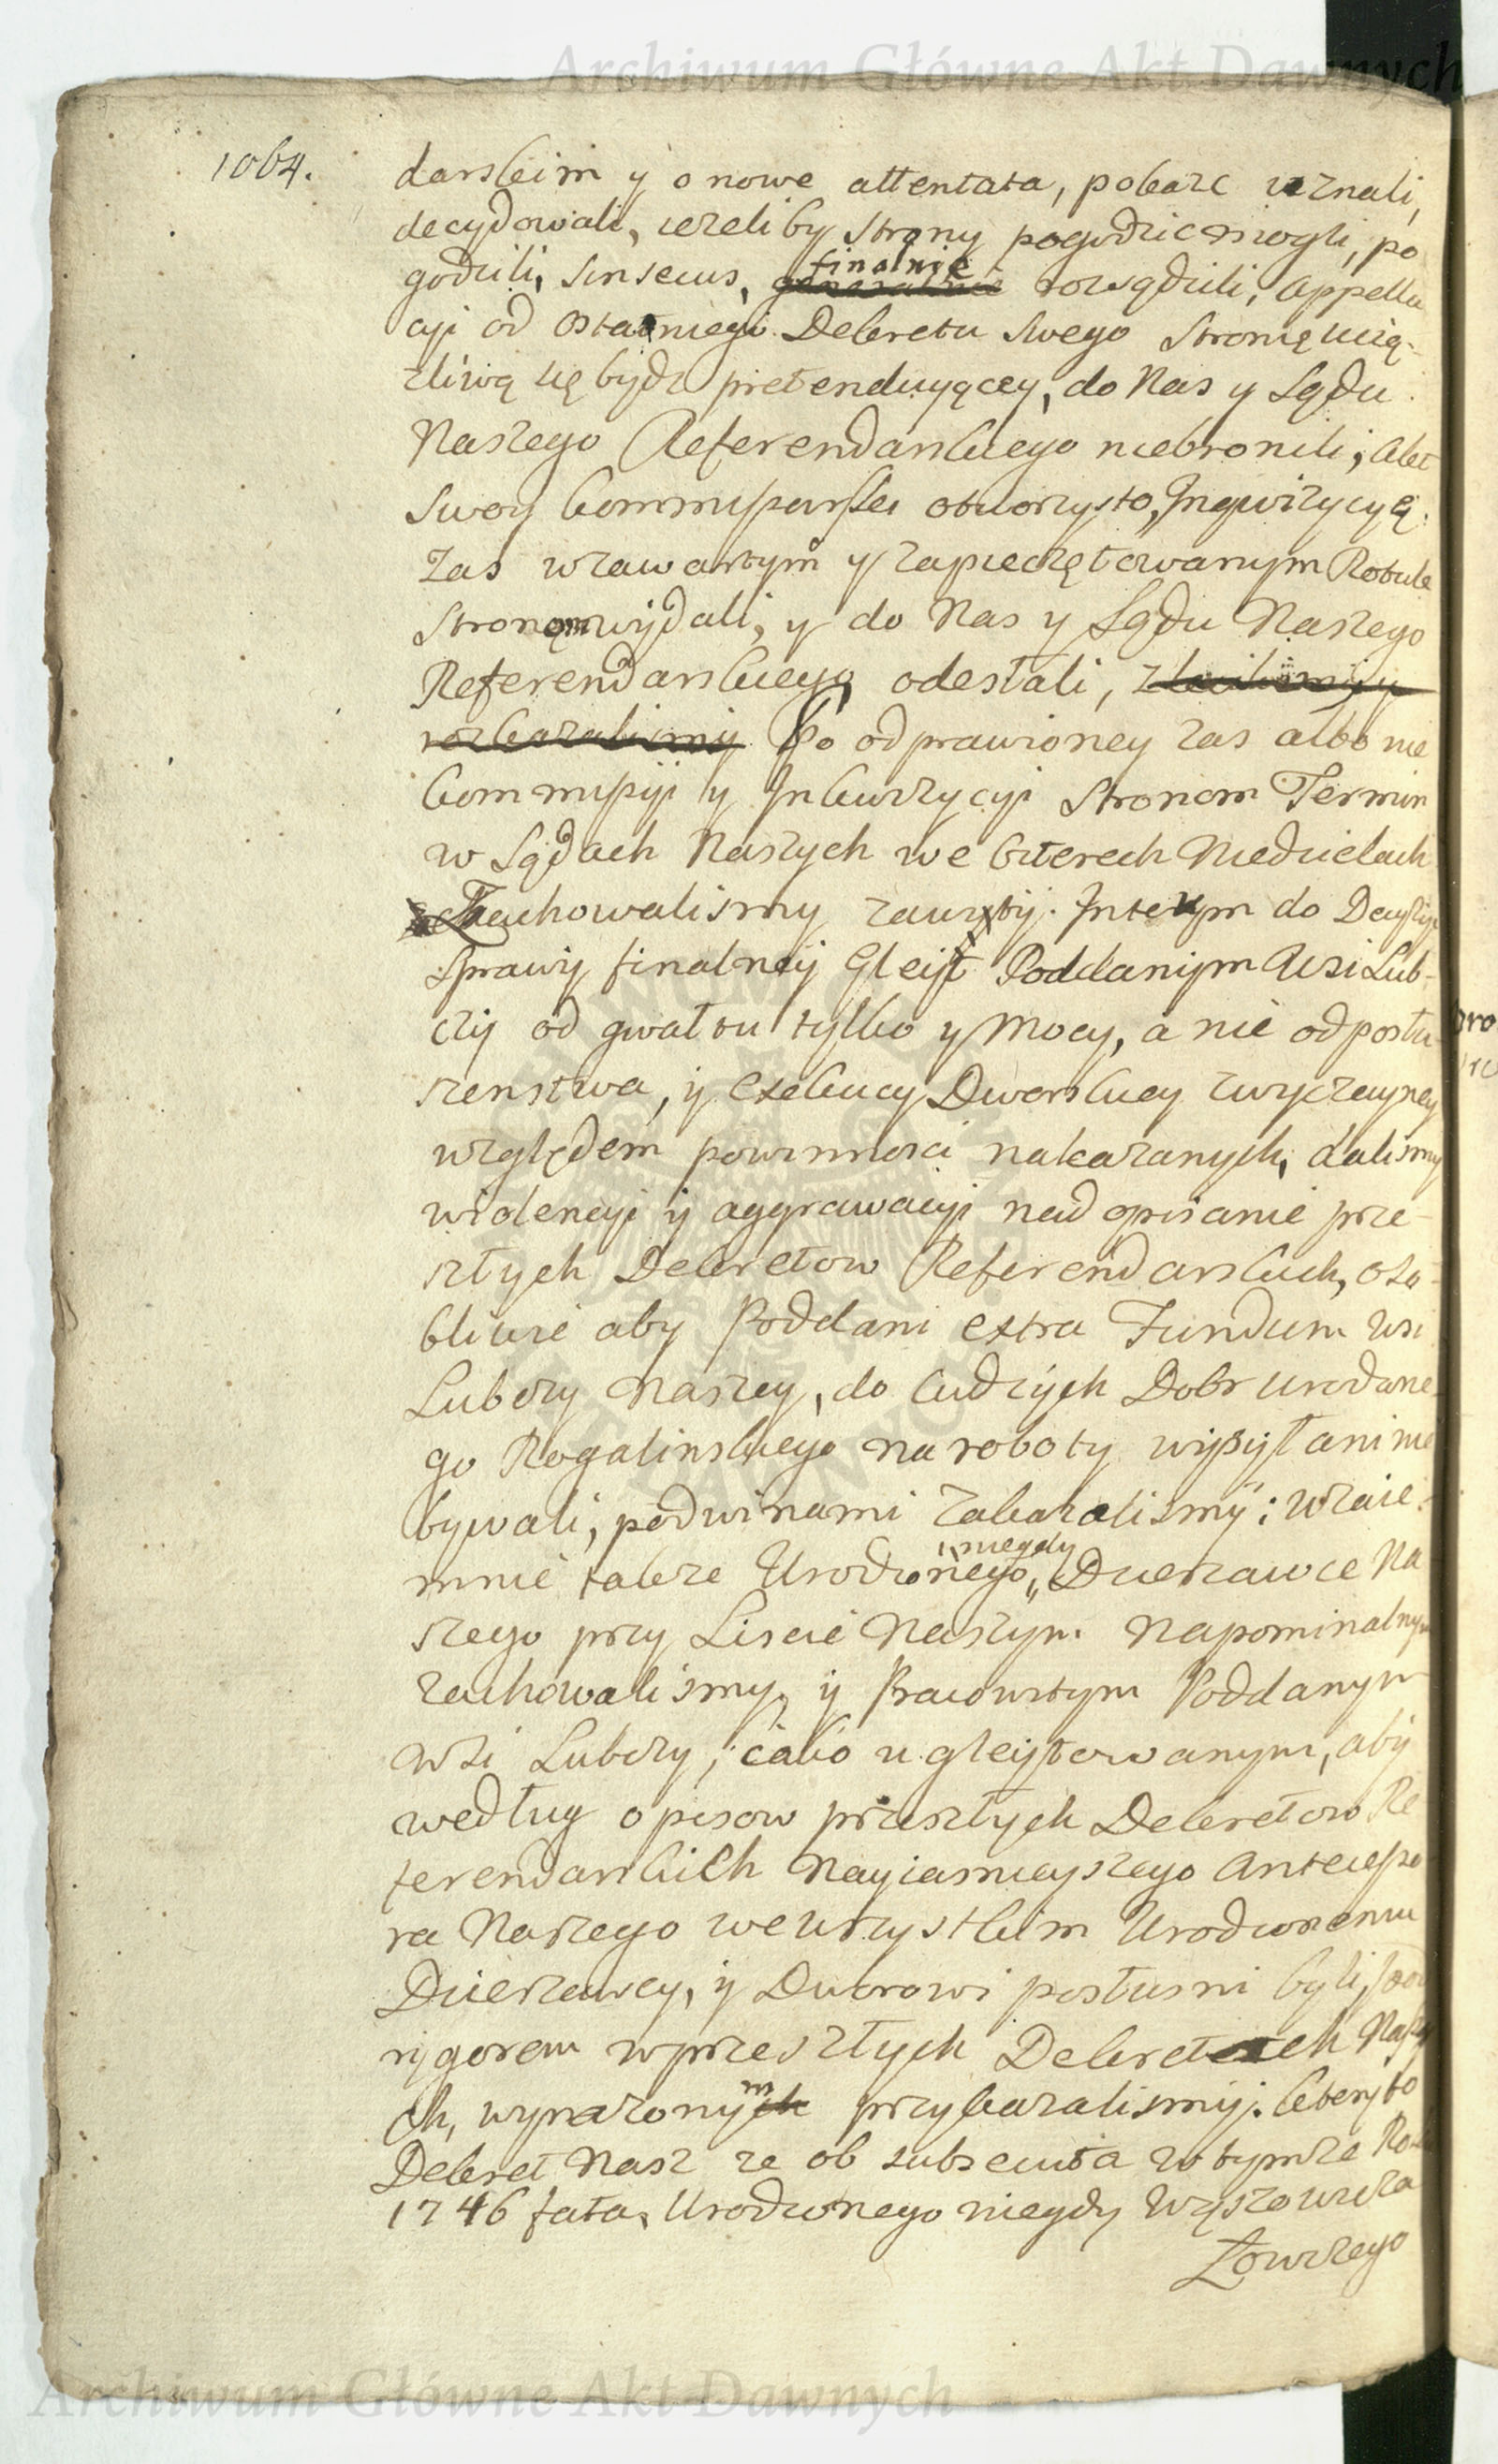 Archiwum Główne Akt Dawnych
1064.
darskim y o nowe attentata, pokarc uznali,
decydowali, iezeliby Strony pogodzic mogli, po
godzili, sin secus, finalnie rozsądzili, Appella
cyi od ostatniego Dekretu swego Stronię ucią-
zliwą się bydz pretenduiącey, do Nas y Sądu
Naszego Referendarskiego niebronili; Akt
Swoy Kommissarski otworzysto, Inqwizycyą
zas wzawartym y zapieczętowanym Rotule
Stronom wydali, y do Nas y Sądu Naszego
Referendarskiego odesłali,
Po odprawioney zas albo nie
Kommissyi y Inkwizycyi Stronom Termin
w Sądach Naszych we czterech Niedzielach
Zachowalismy zawity. Interym do Decyzyi
Sprawy finalney Gleyt Poddanym Wsi Lub-
czy od gwałtu tylko y mocy, a nie od posłu
szenstwa, y Exekucy Dworskiey zwyczayney
względem powinnosci nakazanych, dalismy
wiolencyi y aggrawacyi nad opisanie prze-
szłych Dekretow Referendarskich, oso-
bliwie aby Poddani extra Fundum Wsi
Lubczy Naszey, do cudzych Dobr Urodzone
go Rogalinskiego na roboty wysyłani nie
bywali, pod winami zakazalismy; wzaie-
mnie takze Urodzonego niegdy Dzierzawce Na
szego przy Liscie Naszym Napominalnym
zachowalismy, y Pracowitym Poddanym
Wsi Lubczy, iako ugleytowanym, aby
według opisow przeszłych Dekretow Re
ferendarskich Nayiasnieyszego Antecesso
ra Naszego we wszystkim Urodzonemu
Dzierzawcy, y Dworowi posłuszni byli, pod
rygorem w przeszłych Dekretach Naszy
ch, wyrazonym przykazalismy. Ktory to
Dekret Nasz ze ob subsecuta w tymze Roku
1746 fata, Urodzonego niegdy Wąsowicza
Łowczego
Archiwum Główne Akt Dawnych